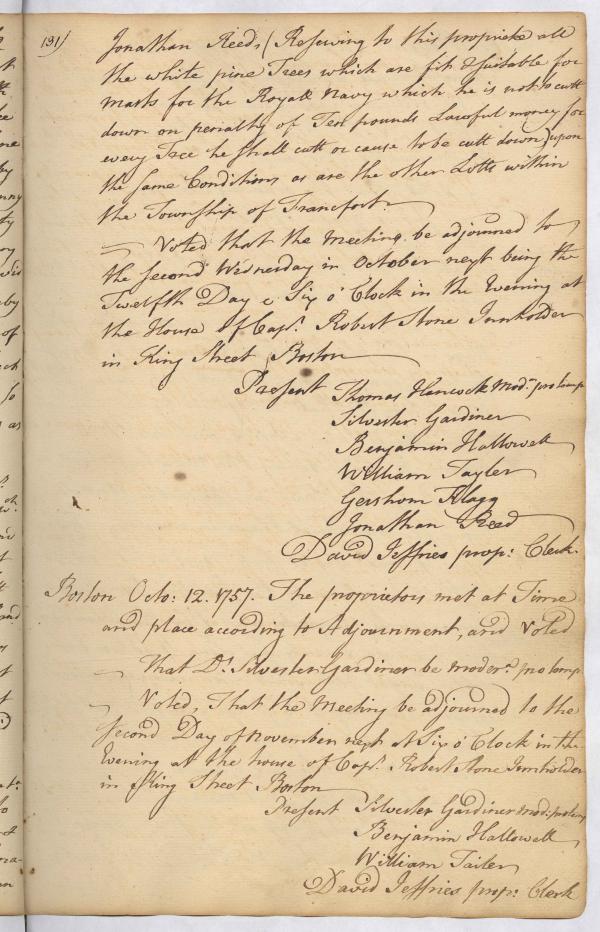 131
Jonathan Reeds, (Reserving to this propriete all
the white pine Trees which are fit & suitable for
masts for the Royall Navy which he is not to cutt
down on penalty of Ten pounds Lawful money for
every Tree he shall cutt or cause to be cutt down) upon
the same Conditions as are the other Lotts within
the Township of Francfort.
Voted that the Meeting be adjourned to
the second Wednesday in October next being the
Twelfth Day @ Six o' Clock in the Evening at
the House of Capt. Robert Stone Innholder
in King Street Boston
Present Thomas Hancock Modr. pro temp
Silvester Gardiner
Benjamin Hallowell
William Tayler
Gershom Flagg
Jonathan Reed
David Jeffries prop: Clerk.
Boston Octo: 12. 1757. The proprietors met at Time
and place according to Adjournment, and Voted
that Dr. Silvester Gardiner be moder. pro temp
Voted, That the Meeting be adjourned to the
second Day of November next at Six o' Clock in the
Evening at the house of Capt. Robert Stone Innholder
in King Street Boston
Present Silvester Gardiner mod: pro temp
Benjamin Hallowell
William Tailer
David Jeffries prop: Clerk